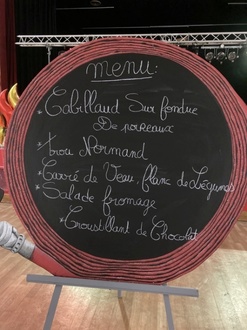 menu:
* Cabillaud Sur fondue
De poireaux
* trou Normand
* Carré de Veau, flanc de Légumes
* Salade fromage
* Croustillant de Chocolat